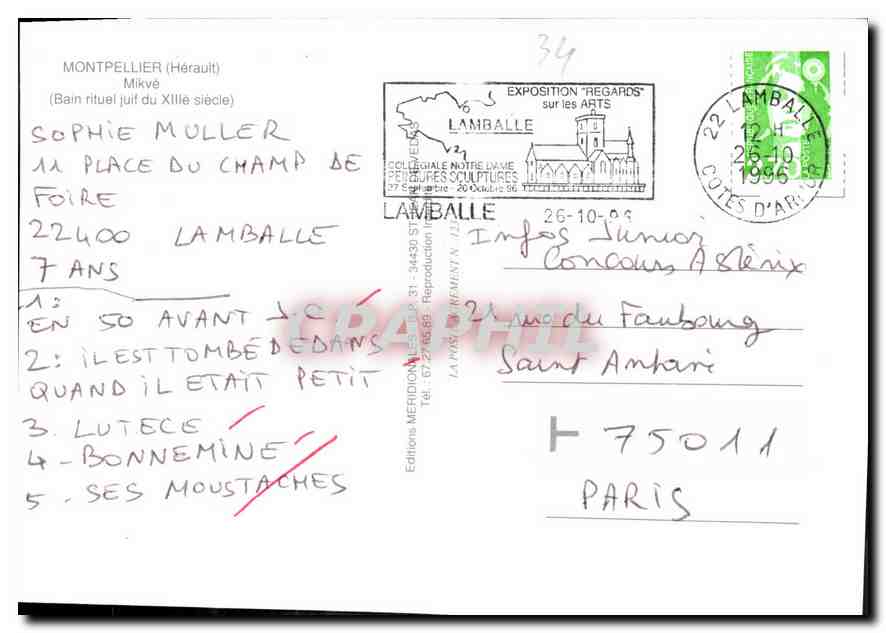 MONTPELLIER (Hérault)
Mikvé
(Bain rituel juif du XIIIè siècle)
SOPHIE MULLER
11 PLACE DU CHAMP DE
FOIRE
22400 LAMBALLE
7 ANS
1:
EN 50 AVANT J.C
2: iL EST TOMBÉ DEDANS
QUAND iL ETAIT PETIT
3. LUTECE
4 - BONNEMINE
5 - SES MOUSTACHES
34
EXPOSITION "REGARDS"
sur les ARTS
LAMBALLE
COLLEGIALE NOTRE DAME
PEINTURES SCULPTURES
27 Septembre - 20 Octobre 96
LAMBALLE 26-10-96
22 LAMBALLE
12 H
26-10
1996
COTES D'ARMOR
Editions MERIDIONALES - B.P. 31 - 34430 ST
Tél.: 67.27.65.89 - Reproduction Interdite
CPAPHIL
Infos Junior
Concours Astérix
21 rue du Faubourg
Saint Antoine
T 75011
PARIS